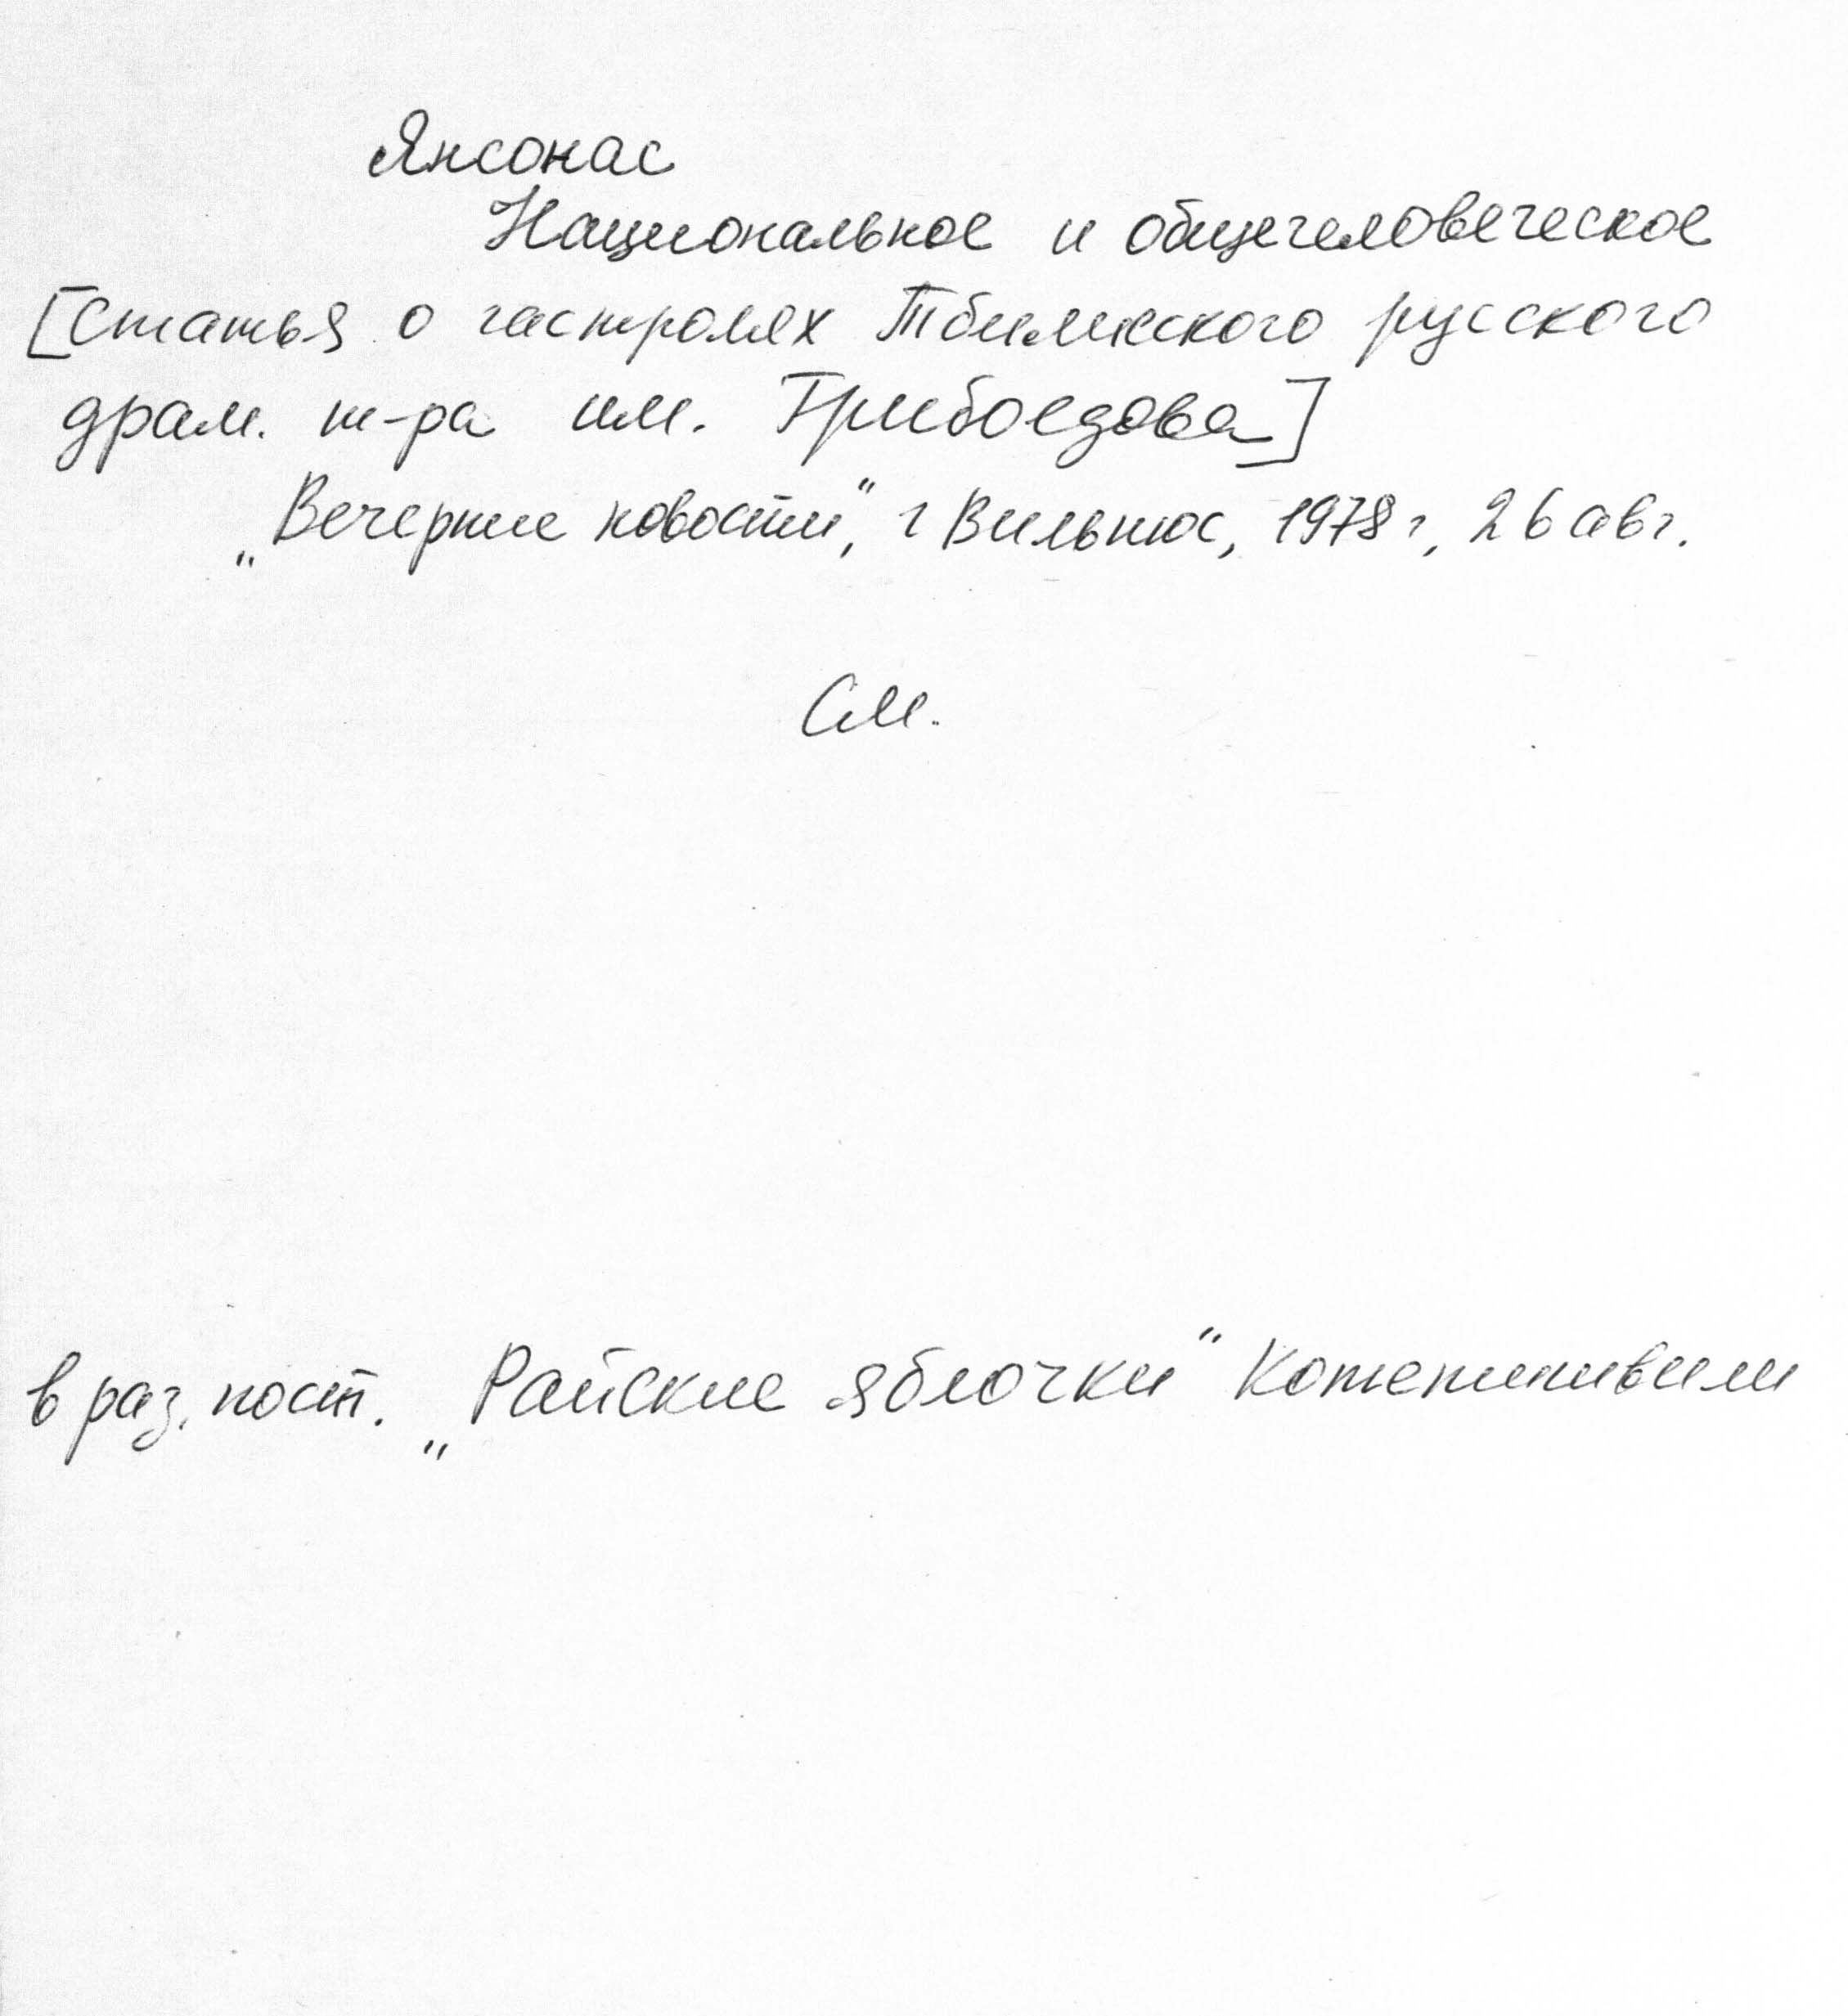 Янсонас
Национальное и общечеловеческое
[Статья о гастролях Тбилисского русского
драм. т-ра им. Грибоедова]
„Вечерние новости", г Вильнюс, 1978 г, 26 авг.
См.
в раз. пост. „Райские яблочки"